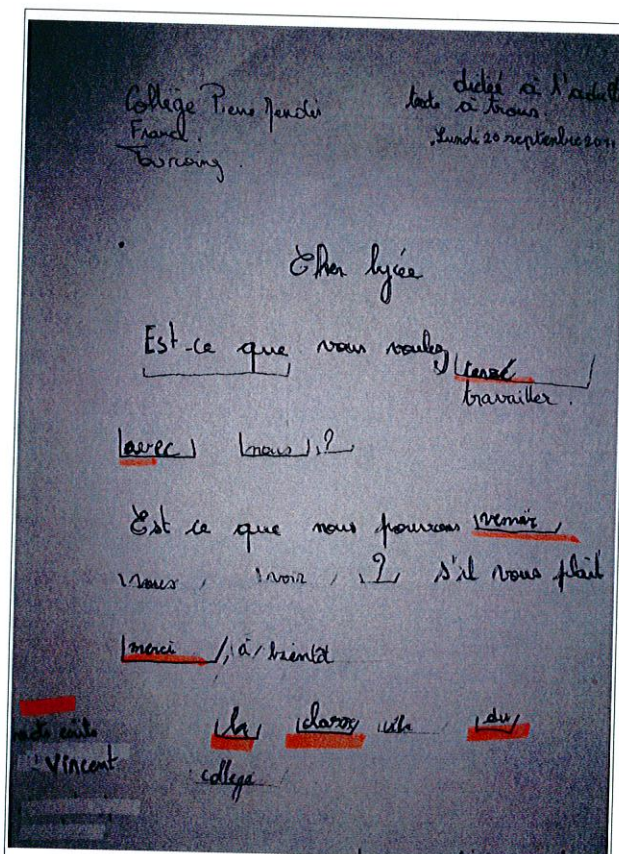 Collège Pierre Mendès
Franc.
Tourcoing.
dictée à l'adulte
texte à trous.
Lundi 20 septembre 2011
Cher lycée
Est-ce que vous voulez
travailler.
avec nous ?
Est ce que nous pourrons venir
vous voir ? s'il vous plaît
merci, à bientôt
la du
Vincent
collège